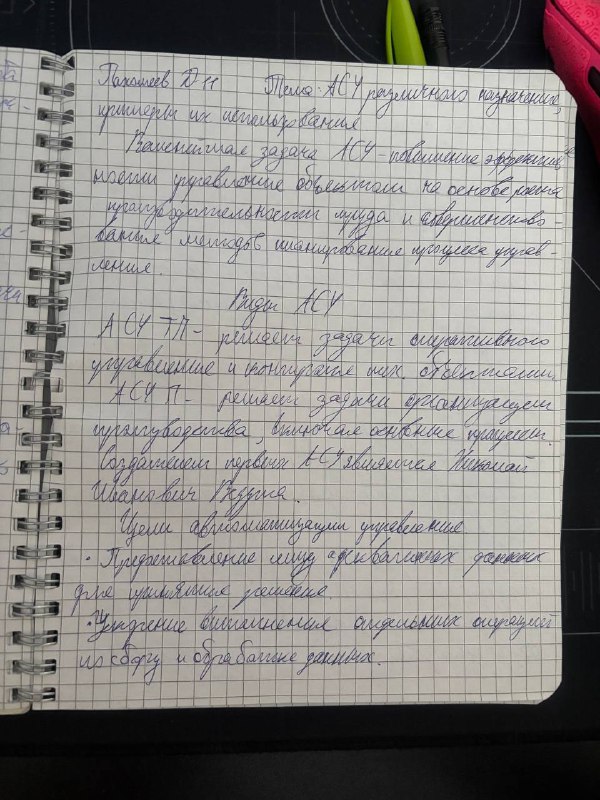 Пахомеев Д 11 Тема: АСУ различного назначения,
примеры их использования
Важнейшая задача АСУ - повышение эффектив
ности управление объектом на основе роста
производительности труда и совершенство-
вание методов планирование процесса управ-
ление.
Виды АСУ
АСУ ТП - решает задачи оперативного
управление и тех. объектами
АСУ П - решает задачи организации
производства, включая основные процессы.
Создателем первых АСУ является Николай
Иванович Ведута.
Цели автоматизации управление.
· Предоставление лицу данных
для принятие решение
· выполнения отдельных операций
по сбору и обработке данных.